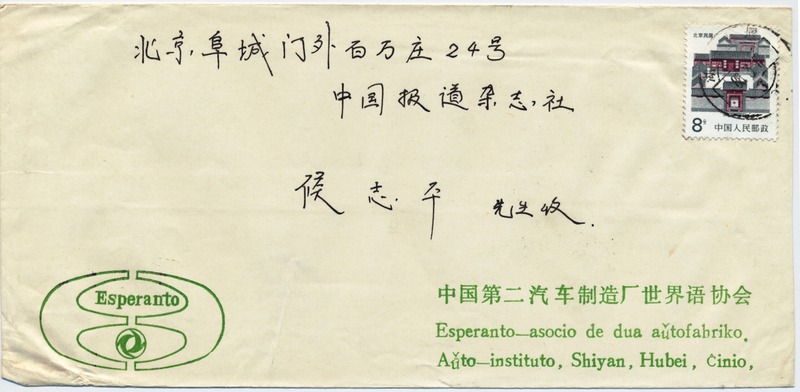 北京阜城门外百万庄24号
中国报道杂志社
侯志平 先生收
北京民居
8分 中国人民邮政
Esperanto
中国第二汽车制造厂世界语协会
Esperanto—asocio de dua aŭtofabriko.
Aŭto—instituto, Shiyan, Hubei, Ĉinio,